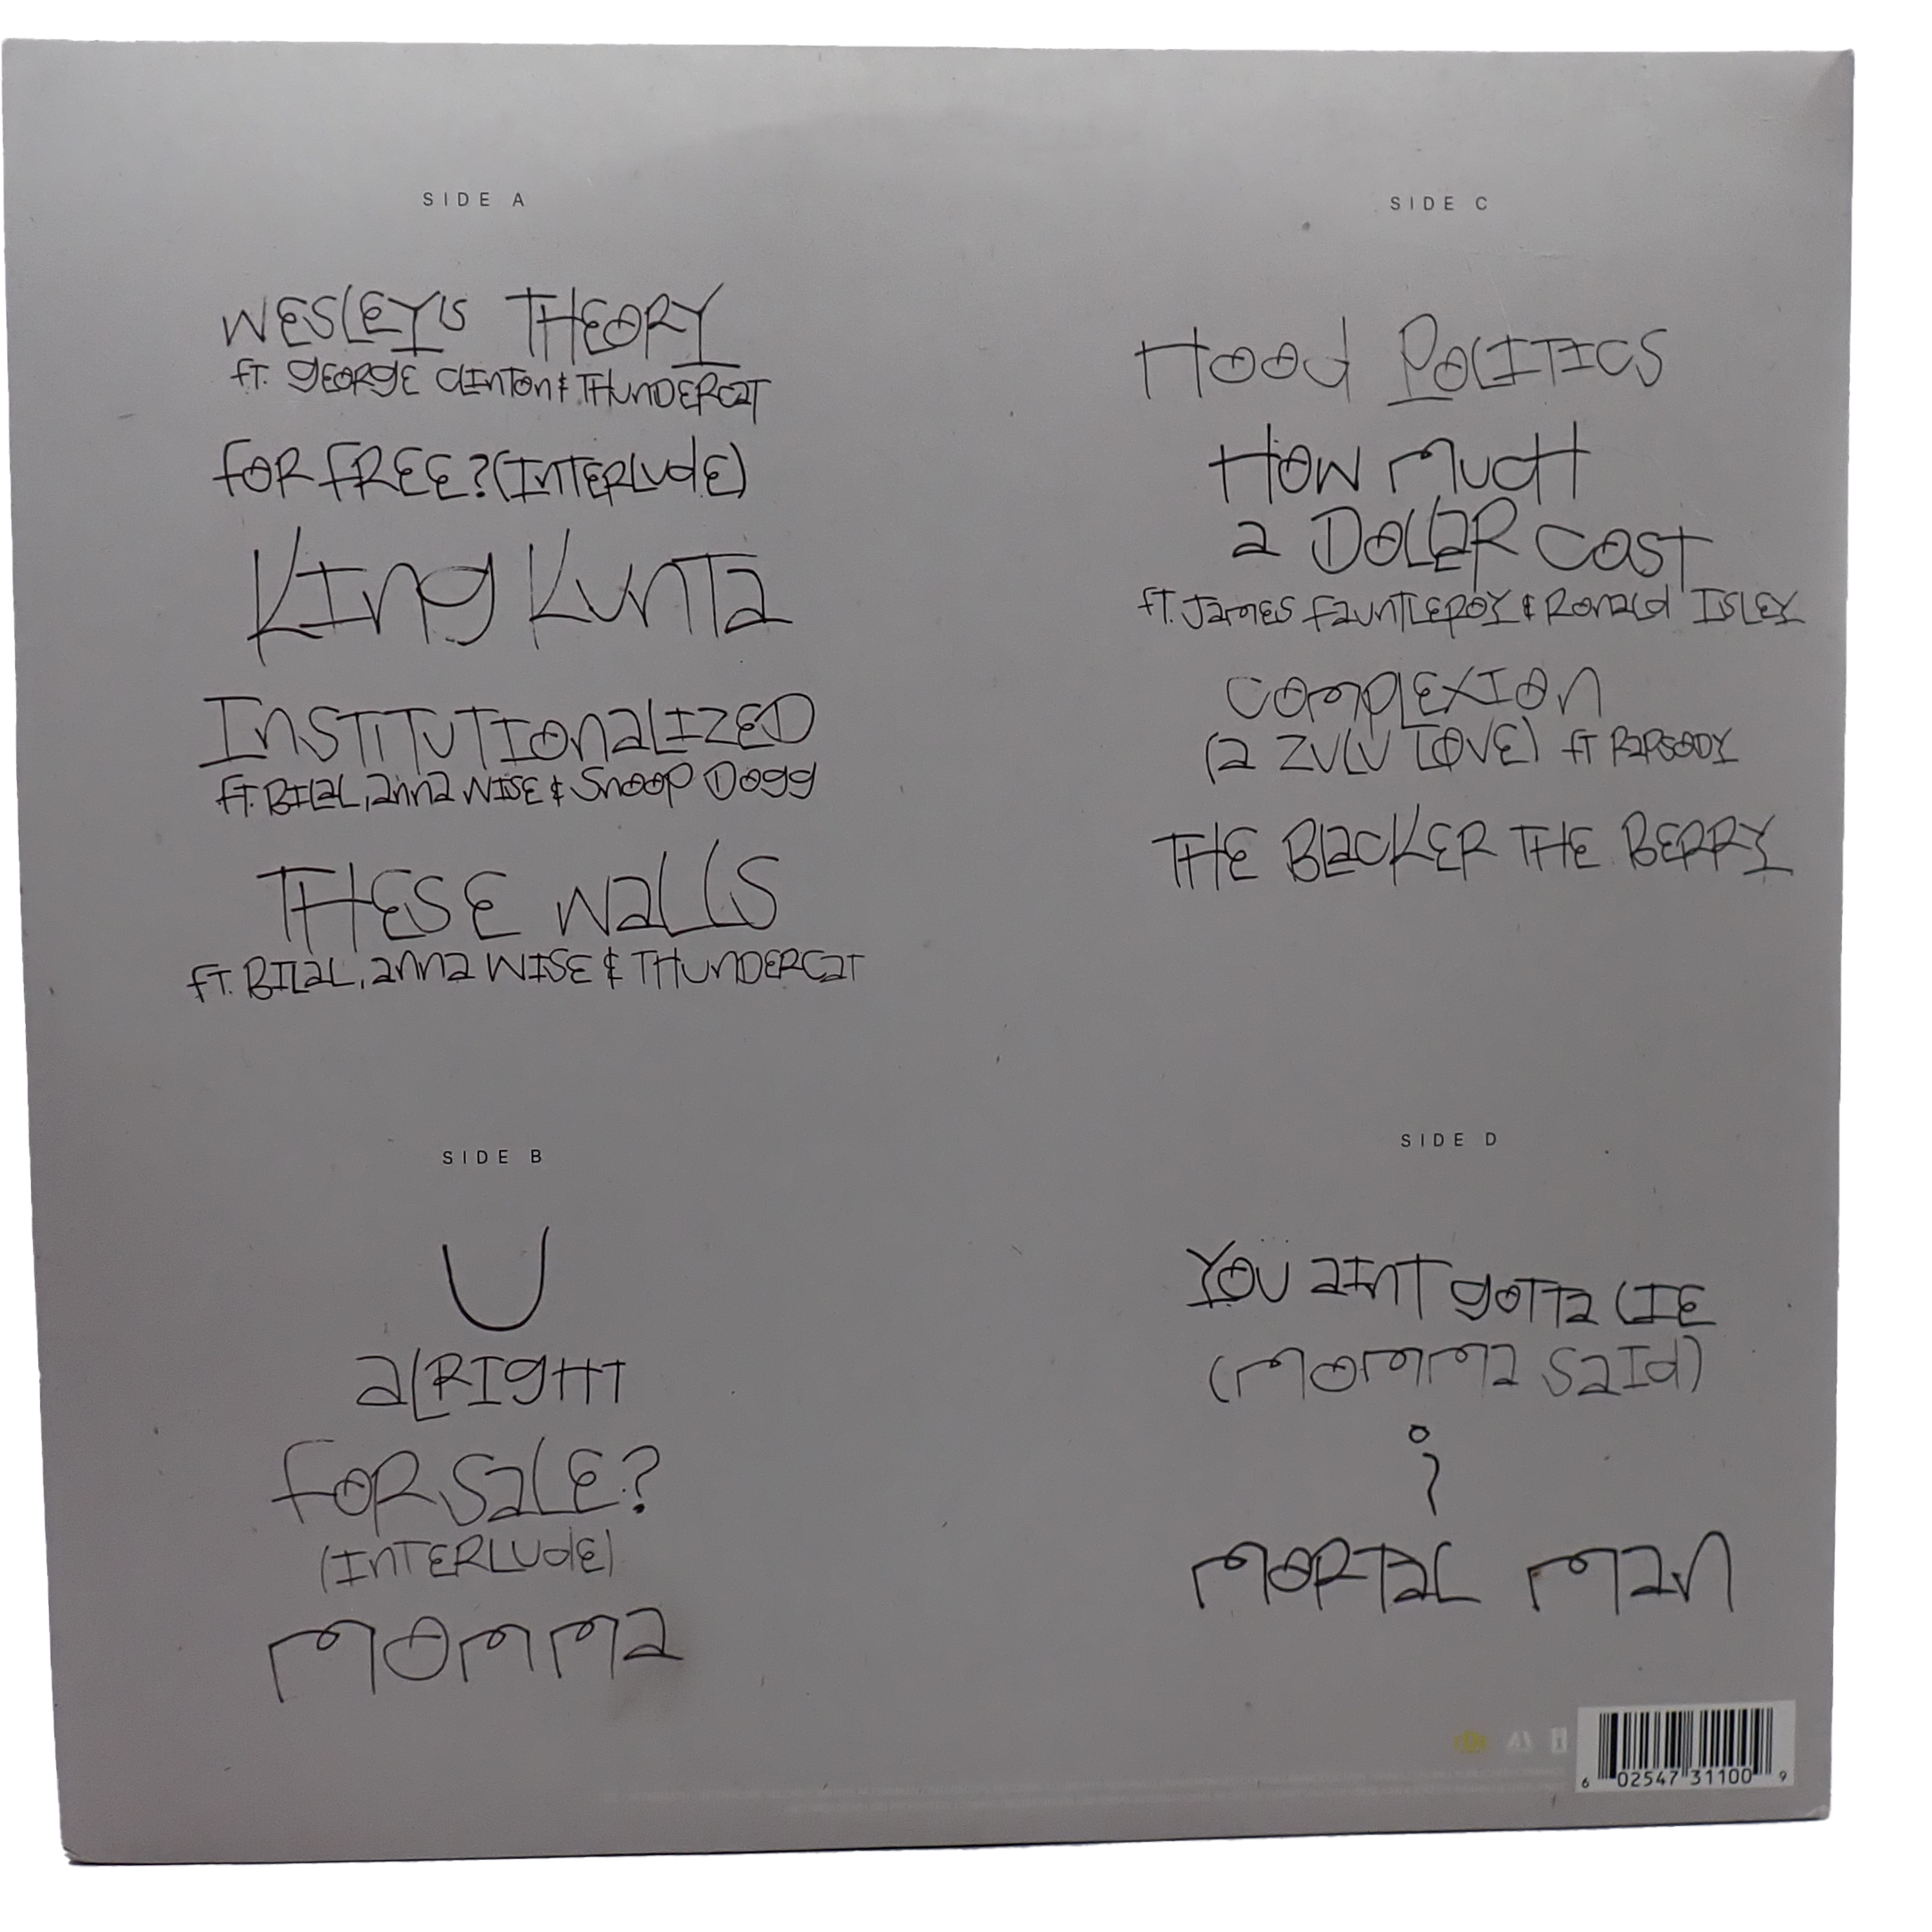 SIDE A
WESLEY'S THEORY
fT. gEORgE ClInTon & THunDERCaT
foR fREE? (InTERludE)
KIng KunTa
InSTITuTIonalIZED
fT. BIlaL, anna WISE & Snoop Dogg
THESE WallS
fT. BIlaL, anna WISE & THunDERCaT
SIDE B
U
alRIgHT
foR SalE?
(InTERLudE)
momma
SIDE C
Hood PolITICS
HoW muCH
a DollaR CoST
fT. JamES faunTLERoY & Ronald ISLEY
ComplEXIon
(a ZuLu LoVE) fT RapSoDY
THE BlaCKER THE BERRY
SIDE D
You aInT goTTa lIE
(momma SaId)
i
moRTaL man
6 02547 31100 9